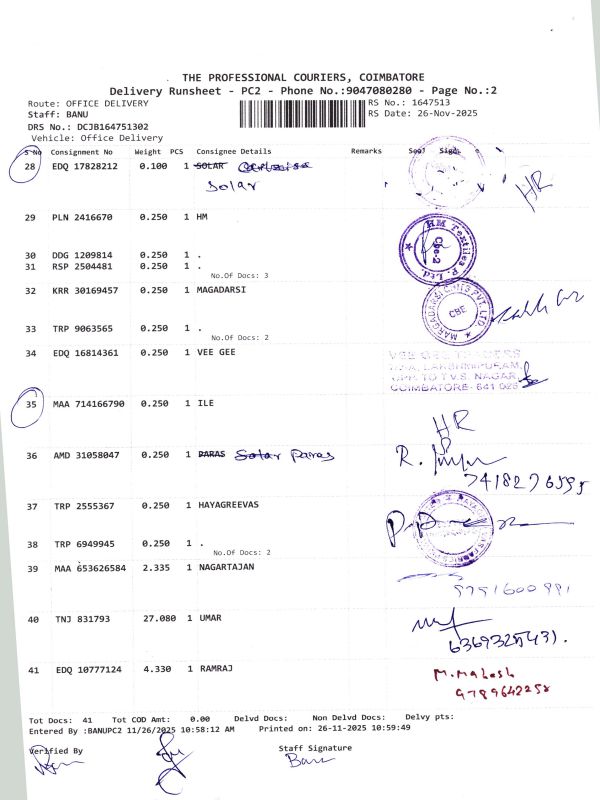 THE PROFESSIONAL COURIERS, COIMBATORE
Delivery Runsheet - PC2 - Phone No.:9047080280 - Page No.:2
Route: OFFICE DELIVERY
RS No.: 1647513
Staff: BANU
RS Date: 26-Nov-2025
DRS No.: DCJB164751302
Vehicle: Office Delivery
S No Consignment No Weight PCS Consignee Details Remarks Seal Sign
28 EDQ 17828212 0.100 1 SOLAR
Solar
HR
29 PLN 2416670 0.250 1 HM
HM Textiles P. Ltd. Cbe-2
30 DDG 1209814 0.250 1 .
31 RSP 2504481 0.250 1 .
No.Of Docs: 3
32 KRR 30169457 0.250 1 MAGADARSI
MARGADARSI CHITS PVT. LTD. CBE
33 TRP 9063565 0.250 1 .
No.Of Docs: 2
34 EDQ 16814361 0.250 1 VEE GEE
VEE GEE TRADERS
LAKSHMIPURAM,
OPP. TO T.V.S. NAGAR,
COIMBATORE- 641 025
35 MAA 714166790 0.250 1 ILE
HR
36 AMD 31058047 0.250 1 PARAS Solar Paras
R.
37 TRP 2555367 0.250 1 HAYAGREEVAS
38 TRP 6949945 0.250 1 .
No.Of Docs: 2
39 MAA 653626584 2.335 1 NAGARTAJAN
40 TNJ 831793 27.080 1 UMAR
41 EDQ 10777124 4.330 1 RAMRAJ
M.Mahesh
9789642258
Tot Docs: 41 Tot COD Amt: 0.00 Delvd Docs: Non Delvd Docs: Delvy pts:
Entered By :BANUPC2 11/26/2025 10:58:12 AM Printed on: 26-11-2025 10:59:49
Verified By
Staff Signature